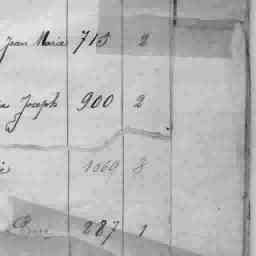 Jean Marie 713 2
Joseph 900 2
1060 8
287 1